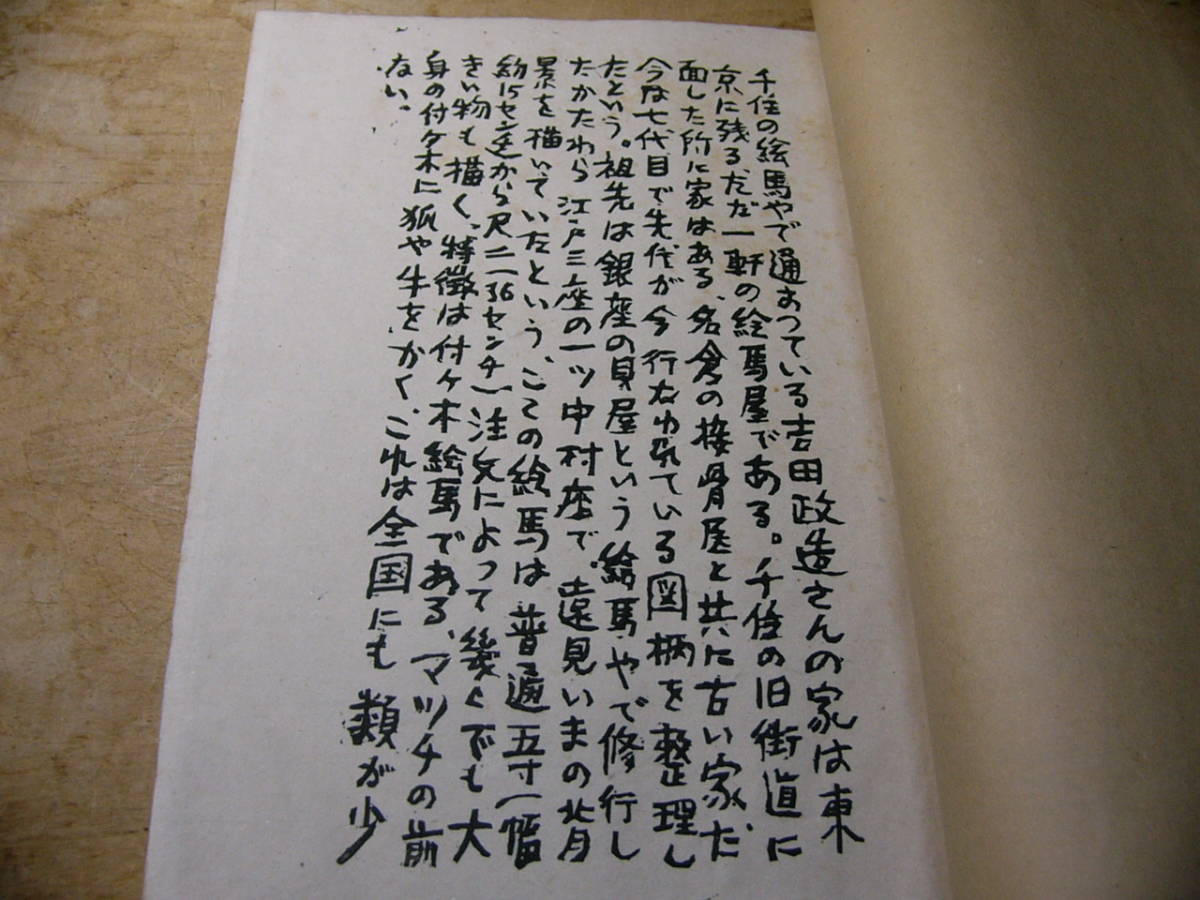 千住の絵馬やで通おつている吉田政造さんの家は東
京に残るただ一軒の絵馬屋である。千住の旧街道に
面した所に家はある、名倉の接骨屋と共に古い家だ、
今は七代目で先代が今行なわれている図柄を整理し
たという。祖先は銀座の貝屋という絵馬やで修行し
たかたわら江戸三座の一ツ中村座で、遠見いまの背
景を描いていたという、ここの絵馬は普通五寸(幅
約15センチ)から尺二(36センチ)注文によって幾らでも大
きい物も描く、特徴は付ケ木絵馬である、マッチの前
身の付ケ木に狐や牛をかく、これは全国にも類が少
ない。